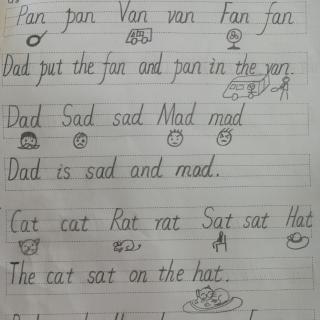 Pan pan Van van Fan fan
Dad put the fan and pan in the van.
Dad Sad sad Mad mad
Dad is sad and mad.
Cat cat Rat rat Sat sat Hat
The cat sat on the hat.